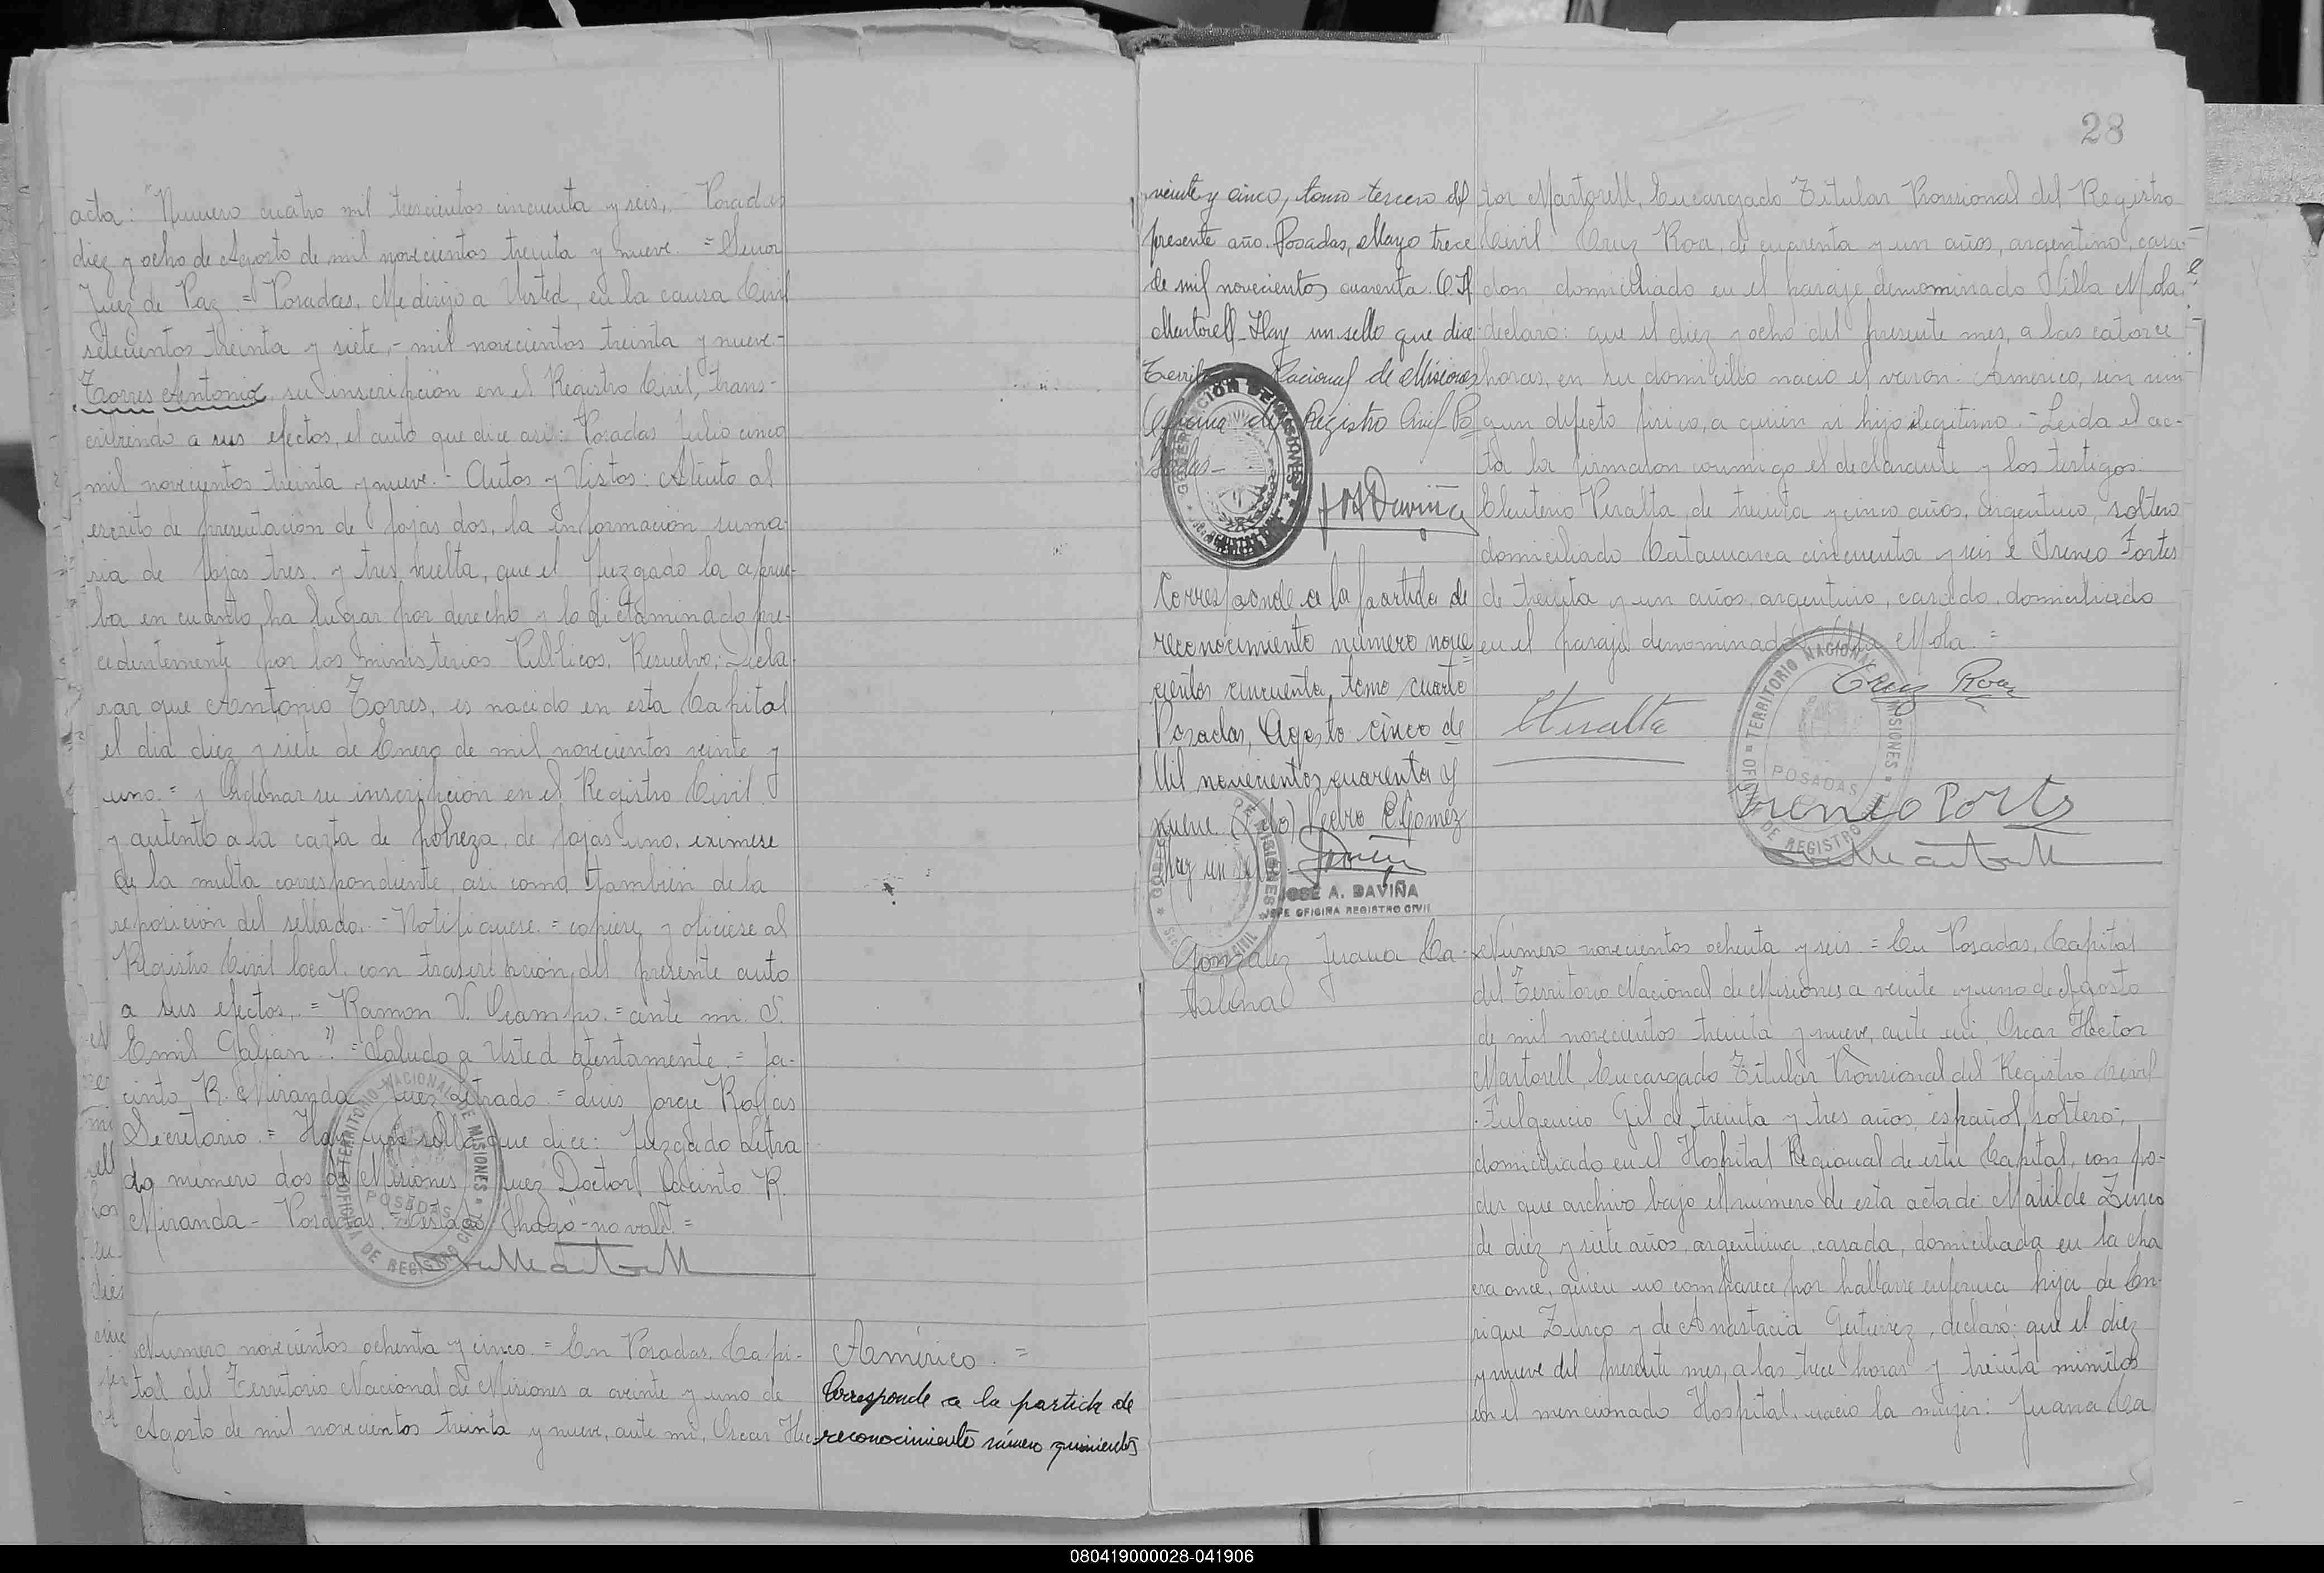 acta: "Numero cuatro mil trescientos cincuenta y seis, - Posadas
diez y ocho de Agosto de mil novecientos treinta y nueve. = Señor
Juez de Paz. = Posadas, Me dirijo a Usted, en la causa Civil
setecientos treinta y siete, - mil novecientos treinta y nueve. -
Torres Antonio, su inscripción en el Registro Civil, trans-
cribiendo a sus efectos, el auto que dice asi: Posadas Julio cinco
mil novecientos treinta y nueve. - Autos y Vistos: Atento al
escrito de presentación de fojas dos, la información suma-
ria de fojas tres y tres vuelta, que el Juzgado la aprue-
ba en cuanto ha lugar por derecho y lo dictaminado pre-
cedentemente por los ministerios Publicos, Resuelvo: Decla-
rar que Antonio Torres, es nacido en esta Capital
el dia diez y siete de Enero de mil novecientos veinte y
uno. = y Ordenar su inscripción en el Registro Civil.
y autento a la carta de pobreza, de fojas uno, eximese
de la multa correspondiente, asi como tambien de la
reposición del sellado. - Notifiquese. = copiese y oficiese al
Registro Civil local, con trascripción del presente auto
a sus efectos. = Ramon V. Ocampo. = ante mi. S.
Emil Galjan". = Saludo a Usted atentamente. = Ja-
cinto R. Miranda Juez Letrado. = Luis Jorge Rojas
Secretario. = Hay un sello que dice: Juzgado Letra
do número dos de Misiones Juez Doctor Jacinto R.
Miranda - Posadas. = Testado "hago" - no vale. =
TERRITORIO NACIONAL DE MISIONES
POSADAS
OFICINA DE REGISTRO CIVIL
Numero novecientos ochenta y cinco. = En Posadas, Capi-
tal del Territorio Nacional de Misiones a veinte y uno de
Agosto de mil novecientos treinta y nueve, ante mi, Oscar Hec-
Américo. =
Corresponde a la partida de
reconocimiento número quinientos
28
veinte y cinco, tomo tercero del
presente año. Posadas, Mayo trece
de mil novecientos cuarenta. O. H.
Martorell - Hay un sello que dice:
Territorio Nacional de Misiones
Oficina de Registro Civil Po-
sadas -
GOBERNACION DE MISIONES
J A Daviña
Corresponde a la partida de
reconocimiento número nove
cientos cincuenta, tomo cuarto
Posadas, Agosto cinco de
Mil novecientos cuarenta y
nueve. (Fdo) Pedro R. Gomez
Hay un sello -
JOSE A. DAVIÑA
JEFE OFICINA REGISTRO CIVIL
Gonzalez Juana Ca-
talina
tor Martorell, Encargado Titular Provisional del Registro
Civil Cruz Roa, de cuarenta y un años, argentino, casa-
do domiciliado en el paraje denominado Villa Mola,
declaró: que el diez y ocho del presente mes, a las catorce
horas, en su domicilio nació el varon: Américo, sin nin
gun defecto fisico, a quien vi hijo ilegitimo. - Leida el ac-
ta la firmaron conmigo el declarante y los testigos:
Eleuterio Peralta, de treinta y cinco años, argentino, soltero
domiciliado Catamarca cincuenta y seis e Ireneo Fortes
de treinta y un años, argentino, casado, domiciliado
en el paraje denominado Villa Mola. =
Cruz Roa
EPeralta
TERRITORIO NACIONAL DE MISIONES
POSADAS
OFICINA DE REGISTRO CIVIL
Ireneo Forts
Número novecientos ochenta y seis. = En Posadas, Capital
del Territorio Nacional de Misiones a veinte y uno de Agosto
de mil novecientos treinta y nueve, ante mi, Oscar Hector
Martorell, Encargado Titular Provisional del Registro Civil
Fulgencio Gil de treinta y tres años, español, soltero,
domiciliado en el Hospital Regional de esta Capital, con po-
der que archivo bajo el número de esta acta de Matilde Zurco
de diez y siete años, argentina, casada, domiciliada en la cha
cra once, quien no comparece por hallarse enferma hija de En-
rique Zurco y de Anastacia Gutierrez, declaró: que el diez
y nueve del presente mes, a las trece horas y treinta minutos
en el mencionado Hospital, nacio la mujer: Juana Ca
080419000028-041906